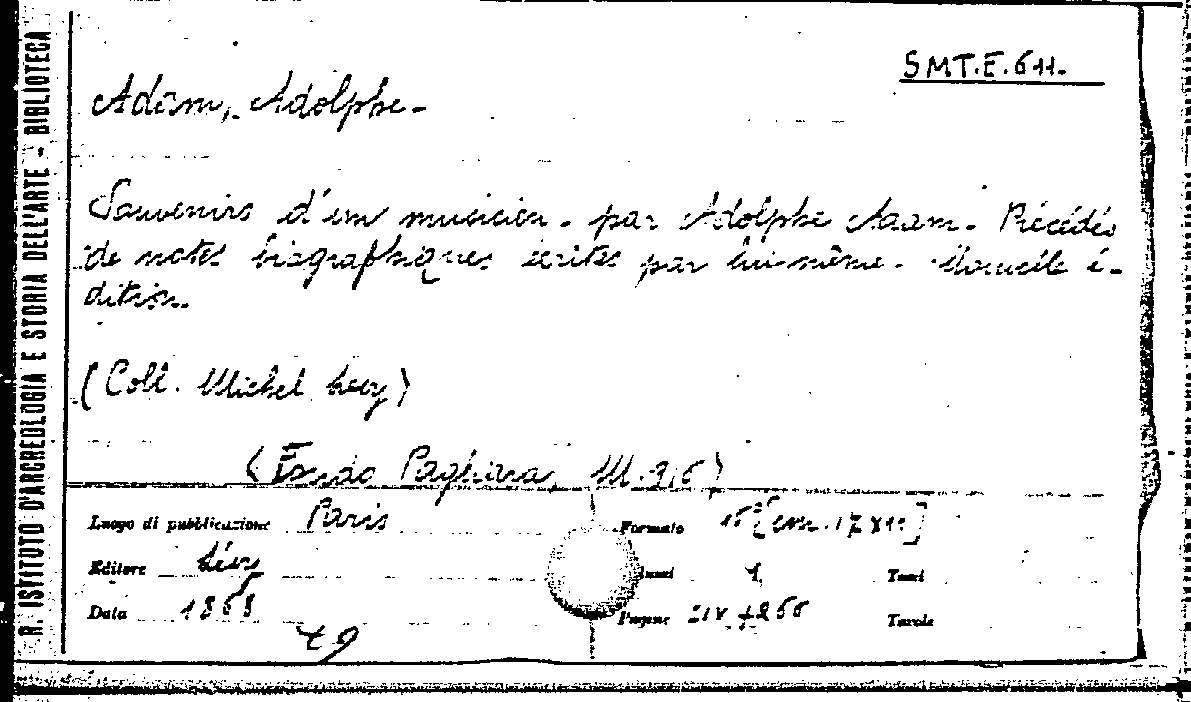 R. ISTITUTO D'ARCHEOLOGIA E STORIA DELL'ARTE - BIBLIOTECA
SMT.E.611.
Adam, Adolphe -
Souvenirs d'un musicien. par Adolphe Adam. Précédés
de notes biographiques écrites par lui-même. Nouvelle é-
dition.
(Coll. Michel Lévy)
(Fondo Pagliara,
Luogo di pubblicazione Paris Formato [cm. 17 x 11]
Editore Lévy 1 Tomi
Data Pagine XIV + 266 Tavole
79